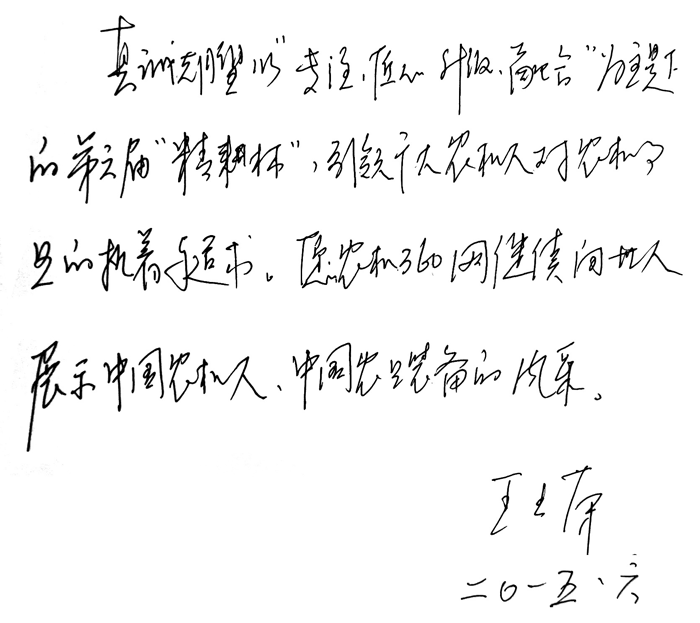 真诚期望以“专注、匠心、升级、融合”为主题
的第六届“精耕杯”，引领广大农机人对农机产
品的执着追求。愿农机360网继续向世人
展示中国农机人、中国农机装备的风采。
王
二〇一五.六